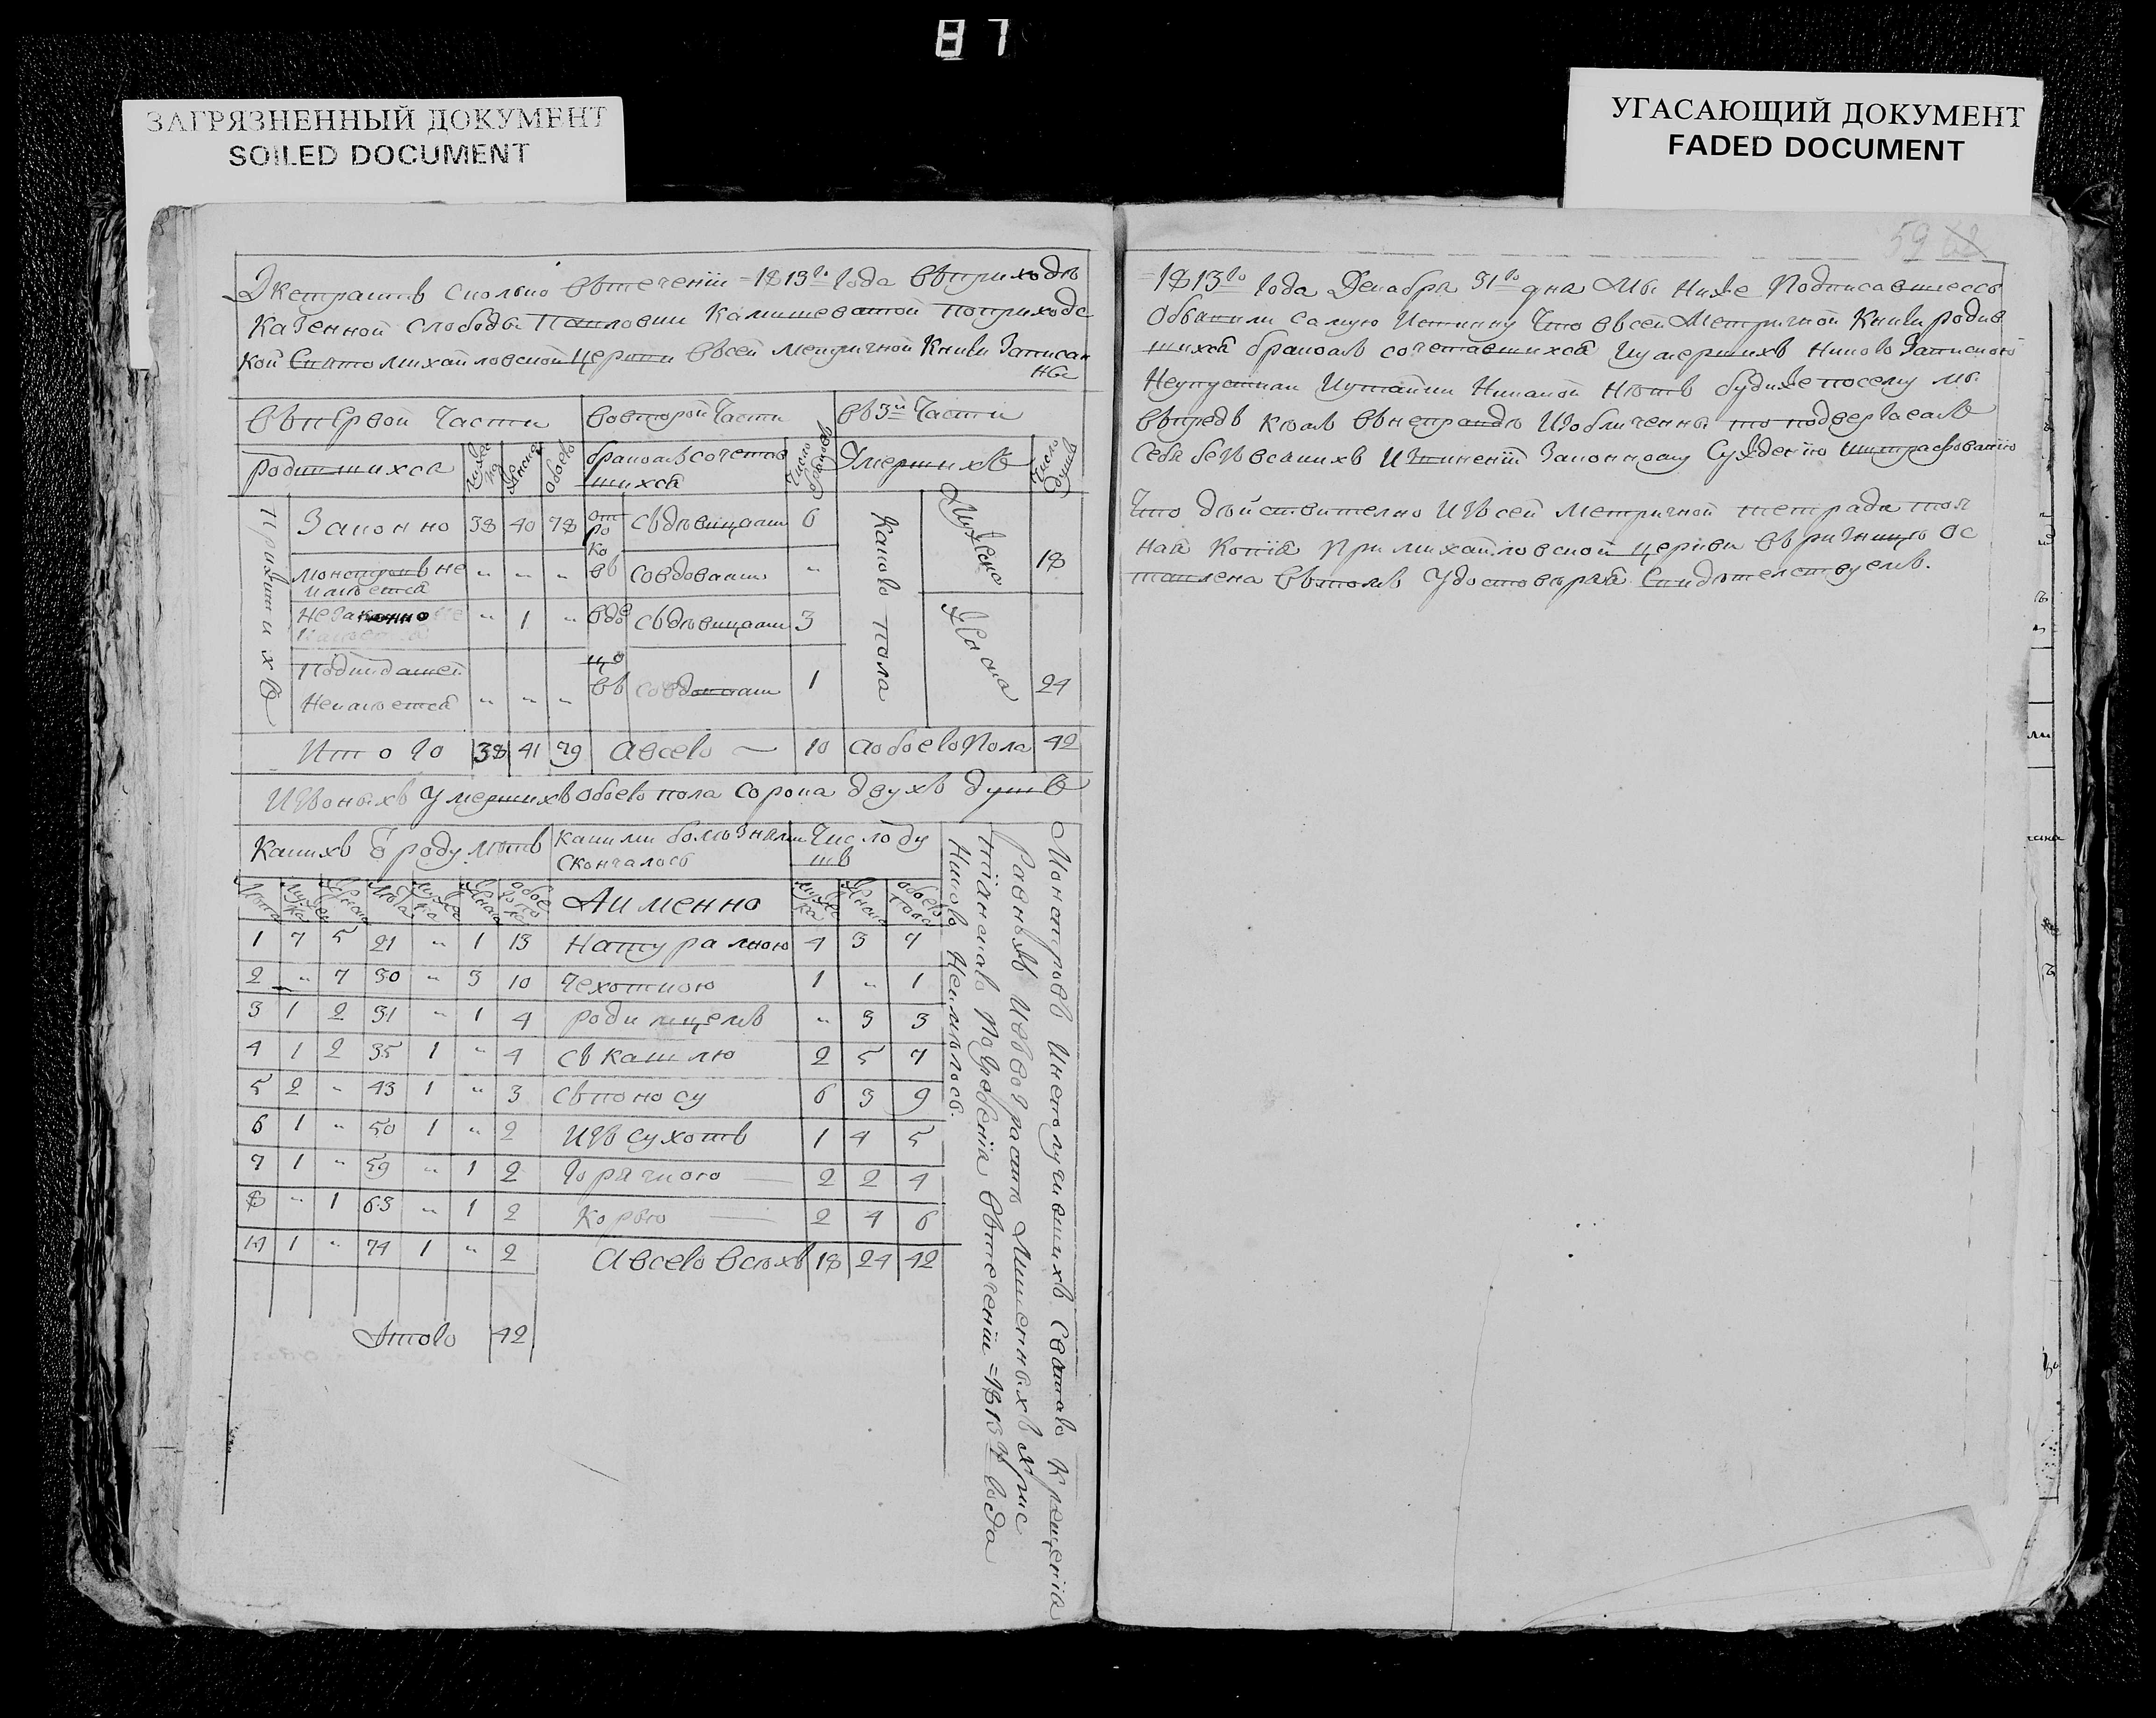 87
ЗАГРЯЗНЕННЫЙ ДОКУМЕНТ
SOILED DOCUMENT
УГАСАЮЩИЙ ДОКУМЕНТ
FADED DOCUMENT
Экстрактъ сколько втечении 1813го года вприходѣ
казенной слободы Павловки Камышеватой поприходс
кой Свято михайловской церкви всей метричной книги записан
ны
впервой части вовторой части в3й части
родившихся мужеска женска обоего бракомъ сочетав шихся число браковъ Умершихъ число душъ
прижитихъ
Законно 38 40 78 от ро ко въ съдѣвицами 6
монстровъ не имѣется " " " совдовами "
незаконно " 1 " вдо съдѣвицами 3
подкидишей неимѣется " " " цо въ совдовами 1
каково пола
Мужеска 18
Женска 24
Итого 38 41 79 авсего 10 аобоего пола 42
Изъоныхъ умершихъ обоего пола сорока двухъ душъ
какихъ отроду лѣтъ какими болѣзнями скончалось число ду шъ
лѣта мужеска женска лѣта мужеска женска обоего пола Аименно мужеска женска обоего пола
1 7 5 21 " 1 13 натуралною 4 3 7
2 " 7 30 " 3 10 чехоткою 1 " 1
3 1 2 31 " 1 4 родимцемъ " 3 3
4 1 2 35 1 " 4 съ кашлю 2 5 7
5 2 " 43 1 " 3 съпоносу 6 3 9
6 1 " 50 1 " 2 изъ сухотъ 1 4 5
7 1 " 59 " 1 2 горячкою 2 2 4
8 " 1 63 " 1 2 корью 2 4 6
1 " 74 1 " 2 авсего всѣхъ 18 24 42
Итого 42
Монстровъ инеполучившихъ святаго крещения
равныхъ лишенныхъ хрис
тианскаго погребения втечении 1813го года
никого неимѣлось.
59
1813го года Декабря 31го дня Мы ниже подписавшеесь
обявили самую истинну что всей метричной книги родив
шихся бракомъ сочетавшихся иумершихъ никого запискою
неупустили иутайки никакой нѣтъ будиже посему мы
впредь кѣмъ внеправдѣ изобличены то подвергаемъ
себя безъ всякихъ извинений законному суждению иштрафованию
что дѣйствително изъ сей метричной тетради точ
ная копия при михайловской церкви в ризницѣ ос
тавлена втомъ удостовѣряя свидѣтелствуемъ.